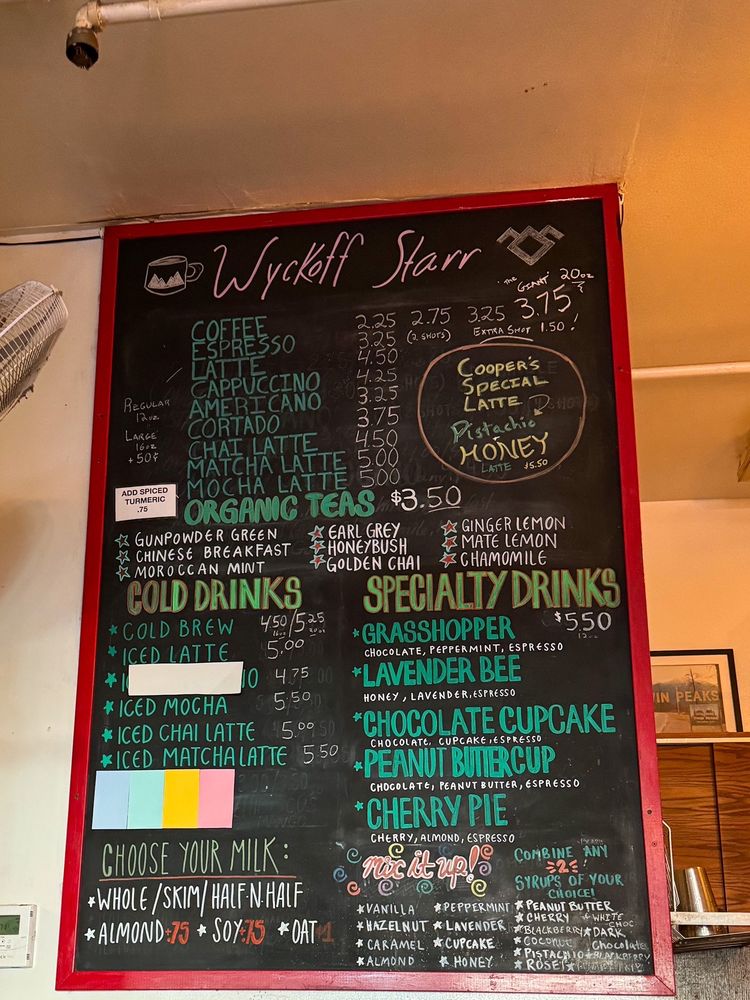 Wyckoff Starr
"THE GIANT" 20oz
COFFEE 2.25 2.75 3.25 3.75
ESPRESSO 3.25 (2 SHOTS) EXTRA SHOT 1.50!
LATTE 4.50
CAPPUCCINO 4.25
AMERICANO 3.25
CORTADO 3.75
CHAI LATTE 4.50
MATCHA LATTE 5.00
MOCHA LATTE 5.00
REGULAR
12oz
LARGE
16oz
+50¢
COOPER'S
SPECIAL
LATTE
Pistachio
HONEY
LATTE $5.50
ADD SPICED
TURMERIC
.75
ORGANIC TEAS $3.50
GUNPOWDER GREEN
CHINESE BREAKFAST
MOROCCAN MINT
EARL GREY
HONEYBUSH
GOLDEN CHAI
GINGER LEMON
MATE LEMON
CHAMOMILE
COLD DRINKS
COLD BREW 4.50/5.25
16oz 20oz
ICED LATTE 5.00
4.75
ICED MOCHA 5.50
ICED CHAI LATTE 5.00
ICED MATCHA LATTE 5.50
SPECIALTY DRINKS
$5.50
12oz
GRASSHOPPER
CHOCOLATE, PEPPERMINT, ESPRESSO
LAVENDER BEE
HONEY, LAVENDER, ESPRESSO
CHOCOLATE CUPCAKE
CHOCOLATE, CUPCAKE, ESPRESSO
PEANUT BUTTERCUP
CHOCOLATE, PEANUT BUTTER, ESPRESSO
CHERRY PIE
CHERRY, ALMOND, ESPRESSO
CHOOSE YOUR MILK:
WHOLE/SKIM/HALF N HALF
ALMOND+.75 SOY+.75 OAT+1
mix it up!
COMBINE ANY
2
SYRUPS OF YOUR
CHOICE!
VANILLA
HAZELNUT
CARAMEL
ALMOND
PEPPERMINT
LAVENDER
CUPCAKE
HONEY
PEANUT BUTTER
CHERRY
BLACKBERRY
COCONUT
PISTACHIO
ROSE
WHITE
CHOC
DARK
Chocolate
IN PEAKS